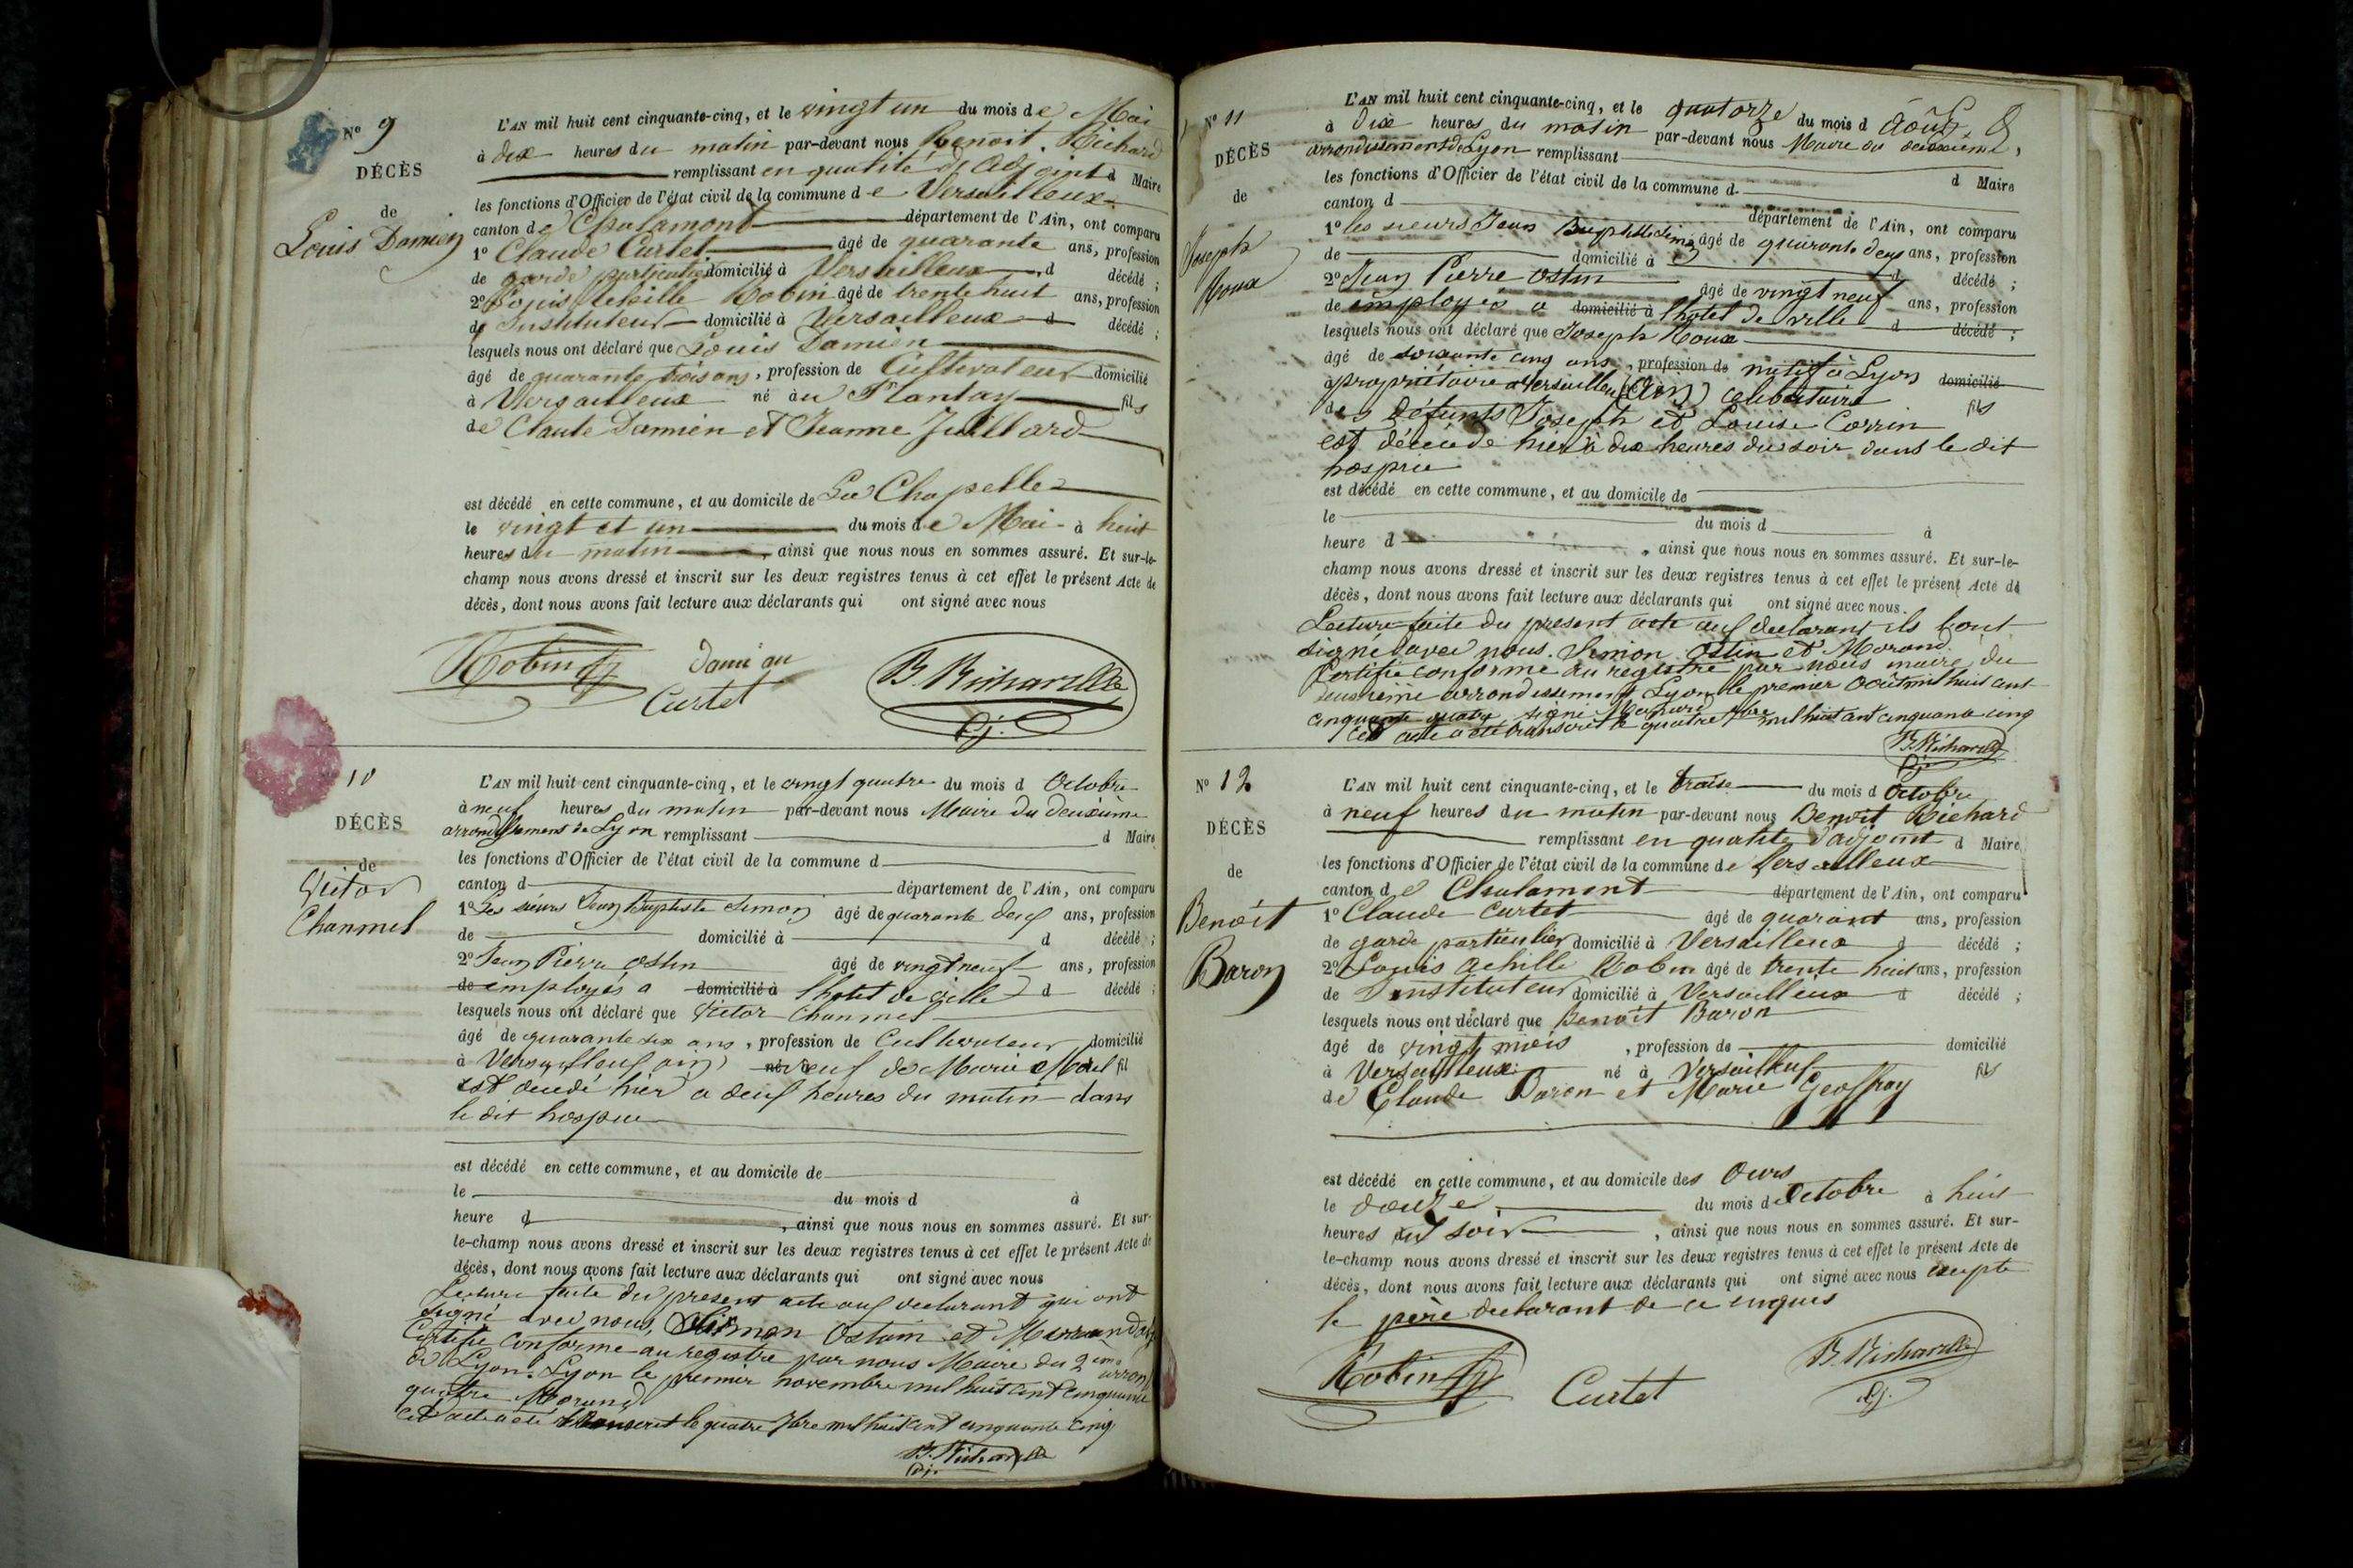 N° 9
DÉCÈS
de
Louis Damien
L'AN mil huit cent cinquante-cinq, et le vingt un du mois de Mai
à dix heures du matin par-devant nous Benoit Richard
remplissant en qualité d'Adjoint d Maire
les fonctions d'Officier de l'état civil de la commune de Versailleux
canton de Chalamont département de l'Ain, ont comparu
1° Claude Curtet âgé de quarante ans, profession
de garde particulier domicilié à Versailleux d décédé ;
2° Louis Achille Robin âgé de trente huit ans, profession
de Instituteur domicilié à Versailleux d décédé ;
lesquels nous ont déclaré que Louis Damien
âgé de quarante trois ans, profession de Cultivateur domicilié
à Versailleux né au Plantay fils
de Claude Damien et Jeanne Juillard
est décédé en cette commune, et au domicile de La Chapelle
le vingt et un du mois de Mai à huit
heures du matin, ainsi que nous nous en sommes assuré. Et sur-le-
champ nous avons dressé et inscrit sur les deux registres tenus à cet effet le présent Acte de
décès, dont nous avons fait lecture aux déclarants qui ont signé avec nous
Robin
Curtet
B. Richard
Adj.
10
DÉCÈS
de
Victor
Chanmel
L'AN mil huit cent cinquante-cinq, et le vingt quatre du mois d Octobre
à neuf heures du matin par-devant nous Maire du deuxième
arrondissement de Lyon remplissant d Maire
les fonctions d'Officier de l'état civil de la commune d
canton d département de l'Ain, ont comparu
1° Les sieurs Jean Baptiste Simon âgé de quarante deux ans, profession
de domicilié à d décédé ;
2° Jean Pierre Ostin âgé de vingt neuf ans, profession
de employés a domicilié à l'hotel de ville d décédé ;
lesquels nous ont déclaré que Victor Chanmel
âgé de quarante six ans, profession de Cultivateur domicilié
à Versailleux ain) né à veuf de Marie Morel fil
est décédé hier a deux heures du matin dans
le dit hospice
est décédé en cette commune, et au domicile de
le du mois d à
heure d , ainsi que nous nous en sommes assuré. Et sur-
le-champ nous avons dressé et inscrit sur les deux registres tenus à cet effet le présent Acte de
décès, dont nous avons fait lecture aux déclarants qui ont signé avec nous
Lecture faite du present acte aux declarant qui ont
signé avec nous, Simon Ostin et Morand
Certifié conforme au registre par nous Maire du 2eme arron
de Lyon. Lyon le premier novembre mil huit cent cinquante
quatre Morand
cet acte a été transcrit le quatre 7bre mil huit cent cinquante cinq
B. Richard
Adj.
N° 11
DÉCÈS
de
Joseph
Roux
L'AN mil huit cent cinquante-cinq, et le quatorze du mois d Août
à dix heures du matin par-devant nous Maire du deuxieme
arrondissement de Lyon remplissant d Maire
les fonctions d'Officier de l'état civil de la commune d
canton d département de l'Ain, ont comparu
1° les sieurs Jean Baptiste Simon âgé de quarante deux ans, profession
de domicilié à d décédé ;
2° Jean Pierre Ostin âgé de vingt neuf ans, profession
de employés a domicilié à l'hotel de ville d décédé ;
lesquels nous ont déclaré que Joseph Roux
âgé de soixante cinq ans, profession de natif à Lyon domicilié
à propriétaire a Versailleux (Ain) celibataire
des défunts Joseph et Louise Corrin fils
est décédé hier à dix heures du soir dans le dit
hospice
est décédé en cette commune, et au domicile de
le du mois d à
heure d , ainsi que nous nous en sommes assuré. Et sur-le-
champ nous avons dressé et inscrit sur les deux registres tenus à cet effet le présent Acte de
décès, dont nous avons fait lecture aux déclarants qui ont signé avec nous.
Lecture faite du present acte aux declarant ils l'ont
signé avec nous. Simon Ostin et Morand
Certifié conforme au registre par nous maire du
deuxième arrondissement Lyon le premier Août mil huit cent
cinquante quatre signé Morand
cet acte a été transcrit le quatre 7bre mil huit cent cinquante cinq
B. Richard
Adj.
N° 12
DÉCÈS
de
Benoît
Baron
L'AN mil huit cent cinquante-cinq, et le traise du mois d Octobre
à neuf heures du matin par-devant nous Benoit Richard
remplissant en qualité d'adjoint d Maire
les fonctions d'Officier de l'état civil de la commune de Versailleux
canton de Chalamont département de l'Ain, ont comparu
1° Claude Curtet âgé de quarant ans, profession
de garde particulier domicilié à Versailleux d décédé ;
2° Louis Achille Robin âgé de trente huit ans, profession
de Instituteur domicilié à Versailleux d décédé ;
lesquels nous ont déclaré que Benoit Baron
âgé de vingt mois, profession de domicilié
à Versailleux né à Versailleux fils
de Claude Baron et Marie Geoffray
est décédé en cette commune, et au domicile des Ours
le douze du mois de Octobre à huit
heures du soir, ainsi que nous nous en sommes assuré. Et sur-
le-champ nous avons dressé et inscrit sur les deux registres tenus à cet effet le présent Acte de
décès, dont nous avons fait lecture aux déclarants qui ont signé avec nous excepté
le père declarant de ce enquis
Robin
Curtet
B. Richard
Adj.